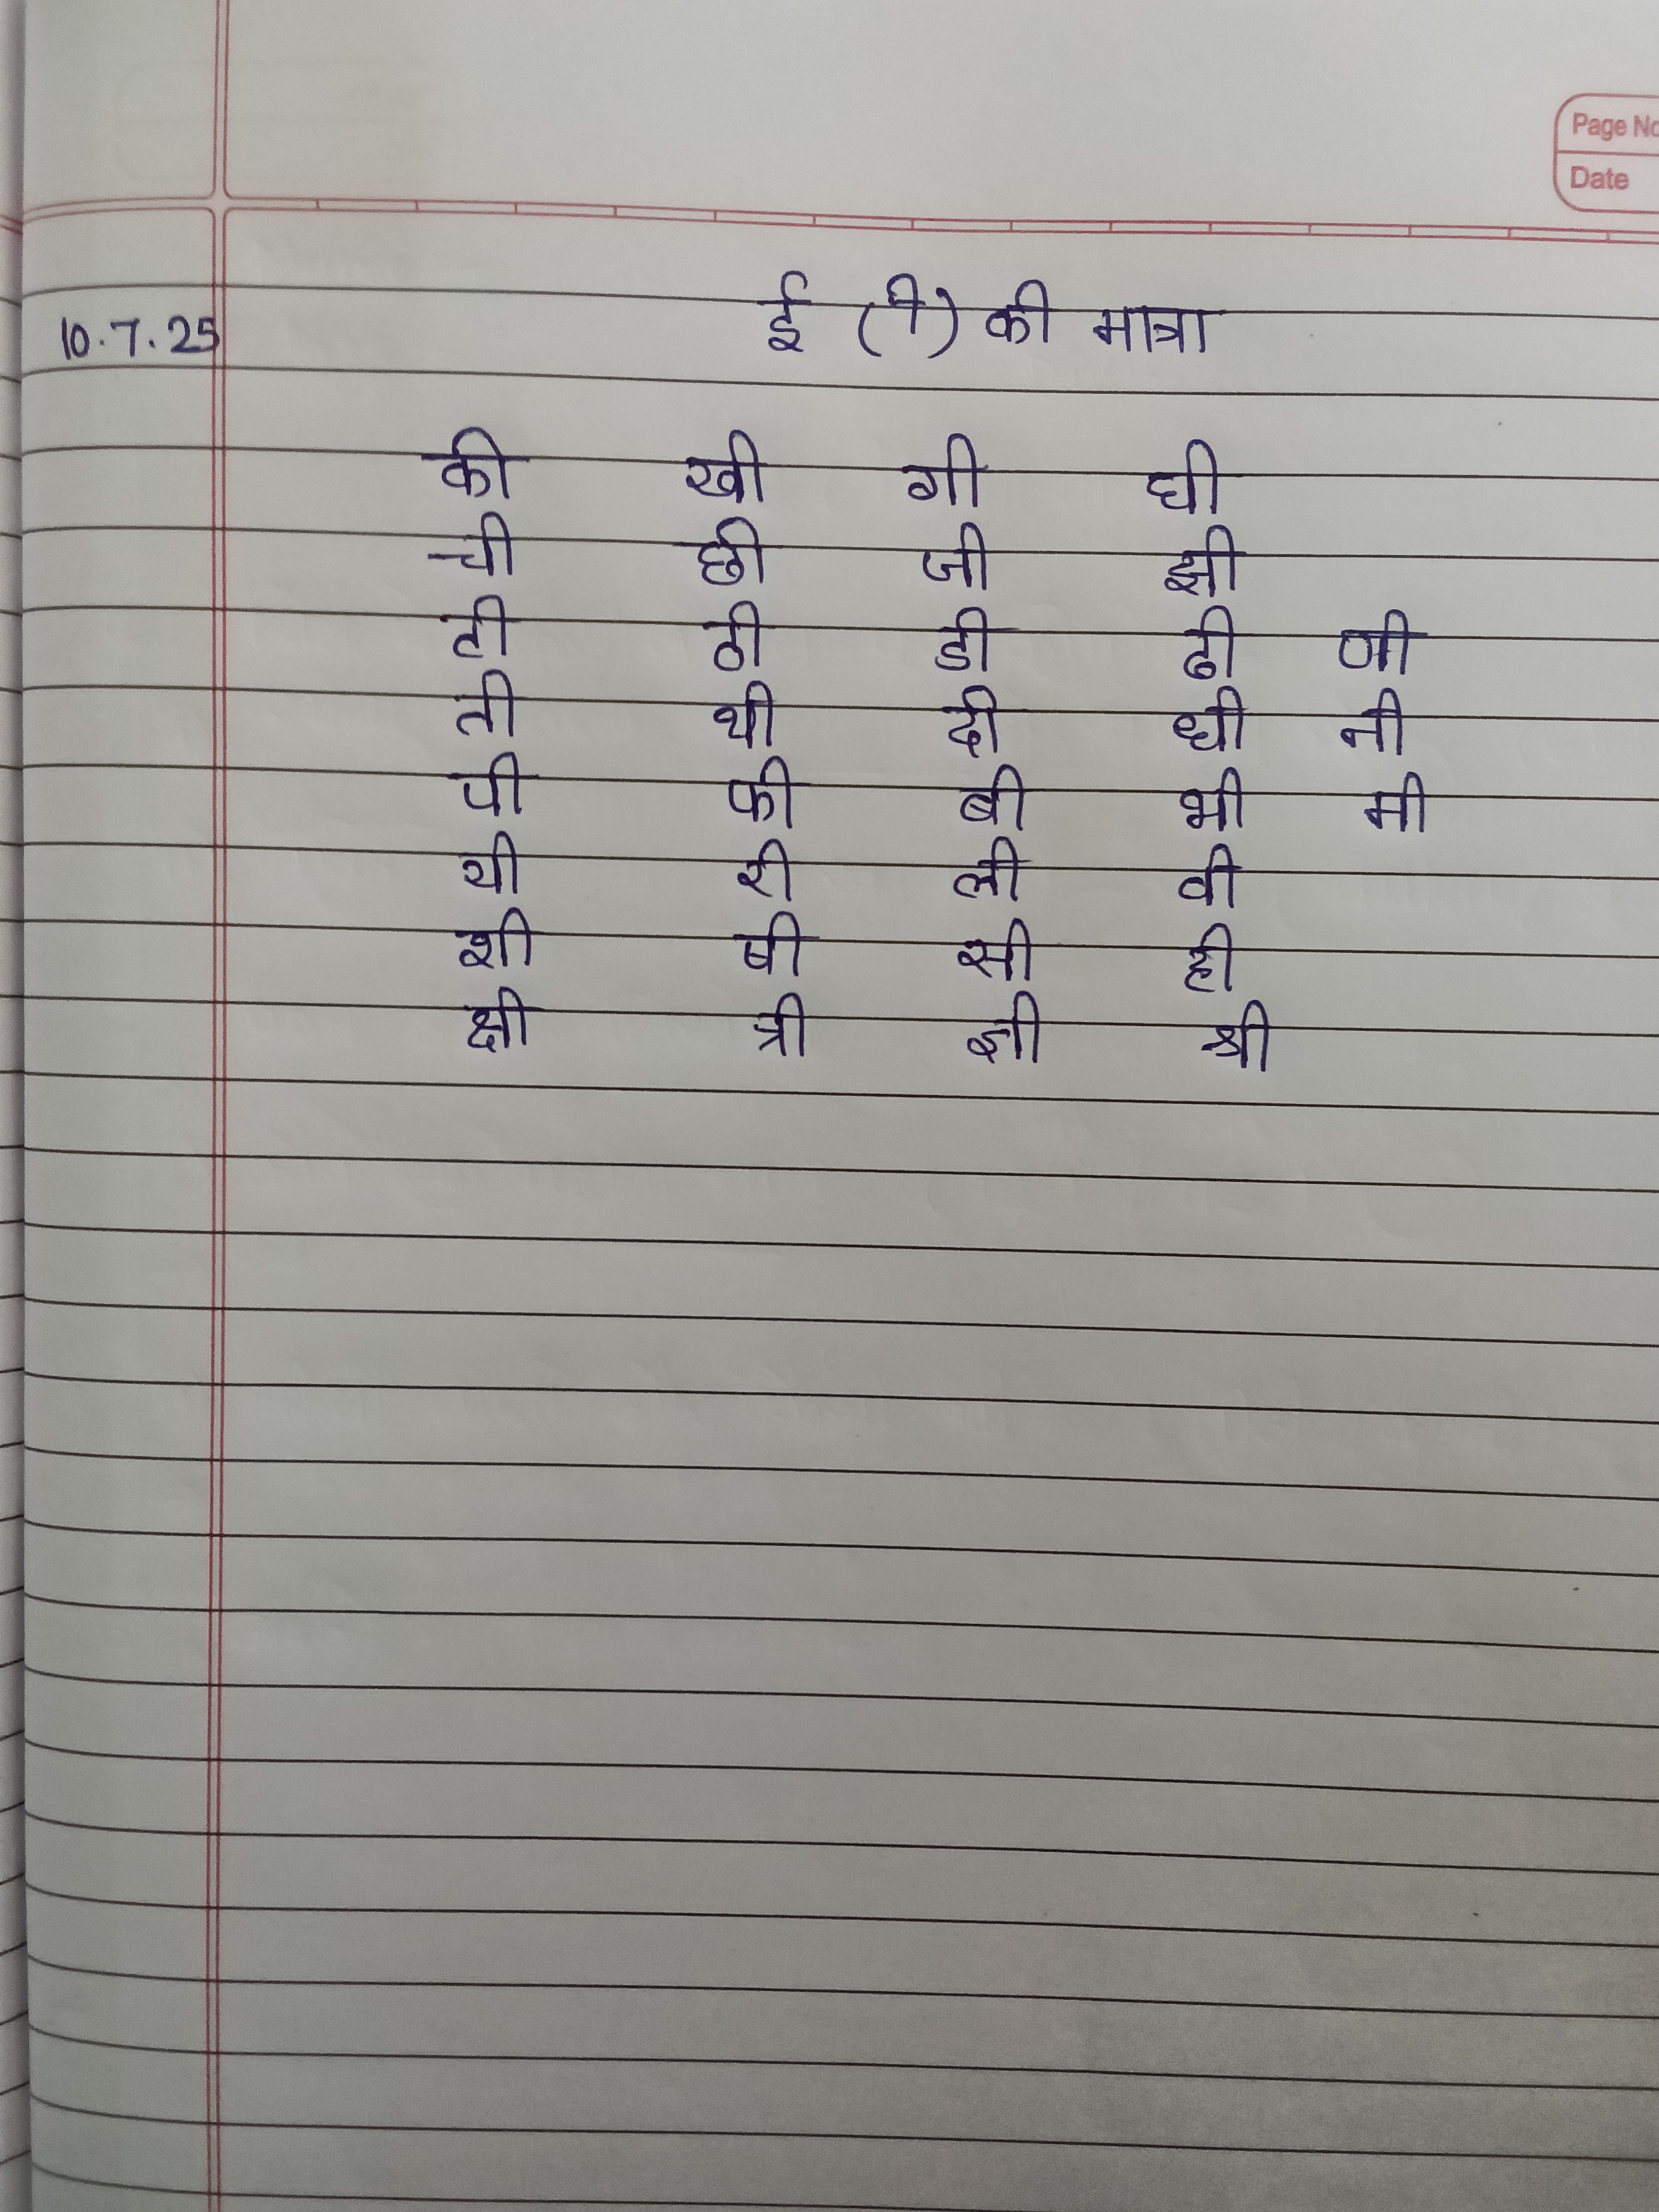 Page No
Date
10.7.25 ई (ी) की मात्रा
की खी गी घी
ची छी जी झी
टी ठी डी ढी णी
ती थी दी धी नी
पी फी बी भी मी
यी री ली वी
शी षी सी ही
क्षी त्री ज्ञी श्री